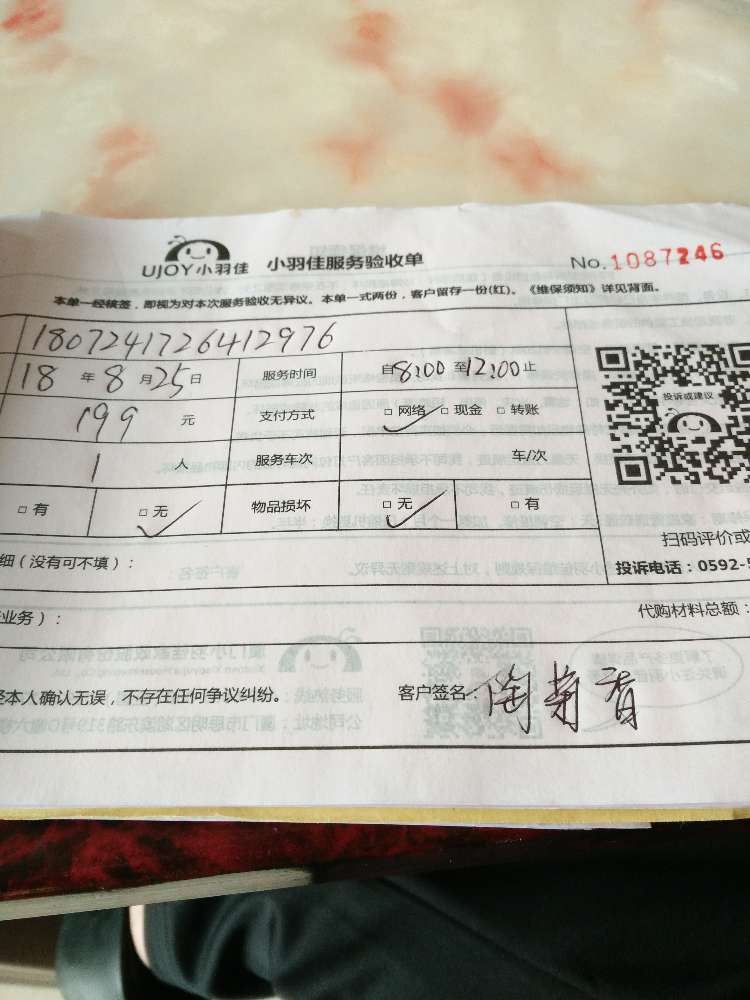 UJOY小羽佳 小羽佳服务验收单 No.1087246
本单一经核签，即视为对本次服务验收无异议。本单一式两份，客户留存一份(红)。《维保须知》详见背面。
1807241726412976
18年8月25日 服务时间 自8:00至12:00止
199元 支付方式 □网络 □现金 □转账
投诉或建议
1人 服务车次 车/次
□有 □无 物品损坏 □无 □有
扫码评价或
细（没有可不填）： 投诉电话：0592-5
业务）： 代购材料总额：
经本人确认无误，不存在任何争议纠纷。 客户签名：陶菊香